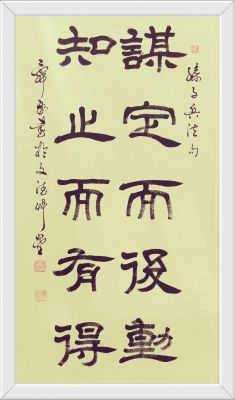 孫子兵法句
謀定而後動
知止而有得
書於文